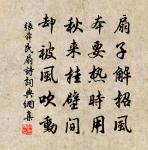 扇子解招風
本要熱時用
秋來挂壁間
却被風吹動
張舜民扇詩詞典網集